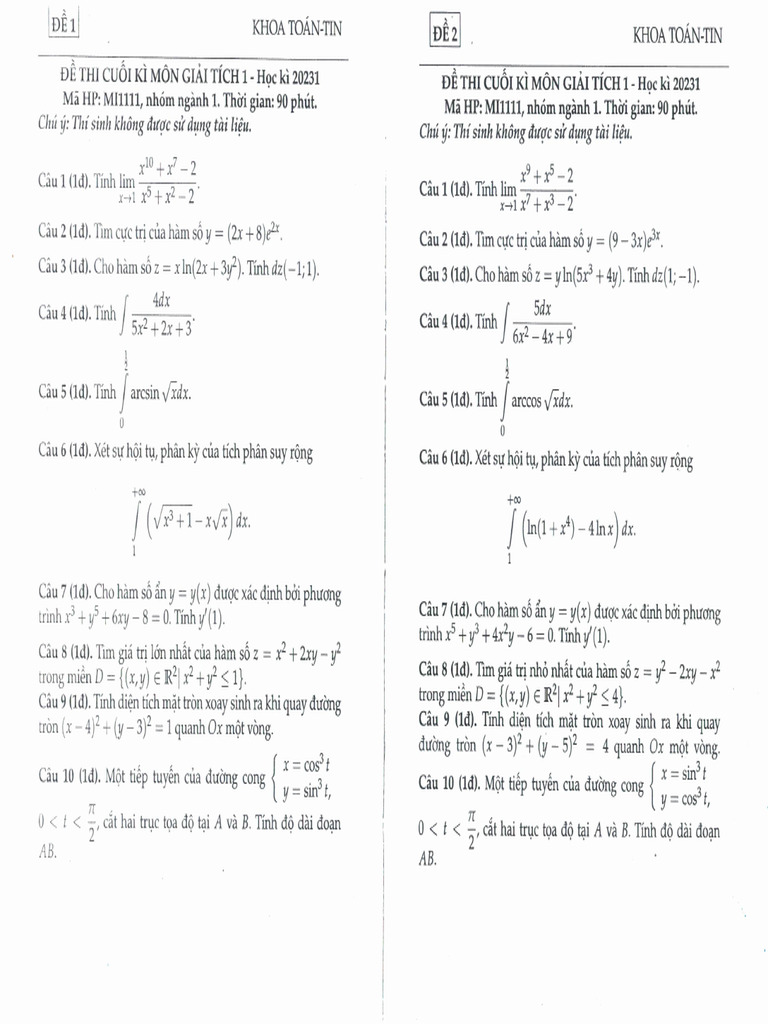 ĐỀ 1
KHOA TOÁN-TIN
ĐỀ THI CUỐI KÌ MÔN GIẢI TÍCH 1 - Học kì 20231
Mã HP: MI1111, nhóm ngành 1. Thời gian: 90 phút.
Chú ý: Thí sinh không được sử dụng tài liệu.
Câu 1 (1đ). Tính lim_{x→1} (x^{10} + x^7 − 2)/(x^5 + x^2 − 2).
Câu 2 (1đ). Tìm cực trị của hàm số y = (2x + 8)e^{2x}.
Câu 3 (1đ). Cho hàm số z = x ln(2x + 3y^2). Tính dz(−1; 1).
Câu 4 (1đ). Tính ∫ 4dx/(5x^2 + 2x + 3).
Câu 5 (1đ). Tính ∫_0^{1/2} arcsin √x dx.
Câu 6 (1đ). Xét sự hội tụ, phân kỳ của tích phân suy rộng
∫_1^{+∞} (√(x^3 + 1) − x√x) dx.
Câu 7 (1đ). Cho hàm số ẩn y = y(x) được xác định bởi phương
trình x^3 + y^5 + 6xy − 8 = 0. Tính y′(1).
Câu 8 (1đ). Tìm giá trị lớn nhất của hàm số z = x^2 + 2xy − y^2
trong miền D = {(x, y) ∈ ℝ^2 | x^2 + y^2 ≤ 1}.
Câu 9 (1đ). Tính diện tích mặt tròn xoay sinh ra khi quay đường
tròn (x − 4)^2 + (y − 3)^2 = 1 quanh Ox một vòng.
Câu 10 (1đ). Một tiếp tuyến của đường cong { x = cos^3 t
y = sin^3 t,
0 < t < π/2, cắt hai trục tọa độ tại A và B. Tính độ dài đoạn
AB.
ĐỀ 2
KHOA TOÁN-TIN
ĐỀ THI CUỐI KÌ MÔN GIẢI TÍCH 1 - Học kì 20231
Mã HP: MI1111, nhóm ngành 1. Thời gian: 90 phút.
Chú ý: Thí sinh không được sử dụng tài liệu.
Câu 1 (1đ). Tính lim_{x→1} (x^9 + x^5 − 2)/(x^7 + x^3 − 2).
Câu 2 (1đ). Tìm cực trị của hàm số y = (9 − 3x)e^{3x}.
Câu 3 (1đ). Cho hàm số z = y ln(5x^3 + 4y). Tính dz(1; −1).
Câu 4 (1đ). Tính ∫ 5dx/(6x^2 − 4x + 9).
Câu 5 (1đ). Tính ∫_0^{1/2} arccos √x dx.
Câu 6 (1đ). Xét sự hội tụ, phân kỳ của tích phân suy rộng
∫_1^{+∞} (ln(1 + x^4) − 4 ln x) dx.
Câu 7 (1đ). Cho hàm số ẩn y = y(x) được xác định bởi phương
trình x^5 + y^3 + 4x^2y − 6 = 0. Tính y′(1).
Câu 8 (1đ). Tìm giá trị nhỏ nhất của hàm số z = y^2 − 2xy − x^2
trong miền D = {(x, y) ∈ ℝ^2 | x^2 + y^2 ≤ 4}.
Câu 9 (1đ). Tính diện tích mặt tròn xoay sinh ra khi quay
đường tròn (x − 3)^2 + (y − 5)^2 = 4 quanh Ox một vòng.
Câu 10 (1đ). Một tiếp tuyến của đường cong { x = sin^3 t
y = cos^3 t,
0 < t < π/2, cắt hai trục tọa độ tại A và B. Tính độ dài đoạn
AB.